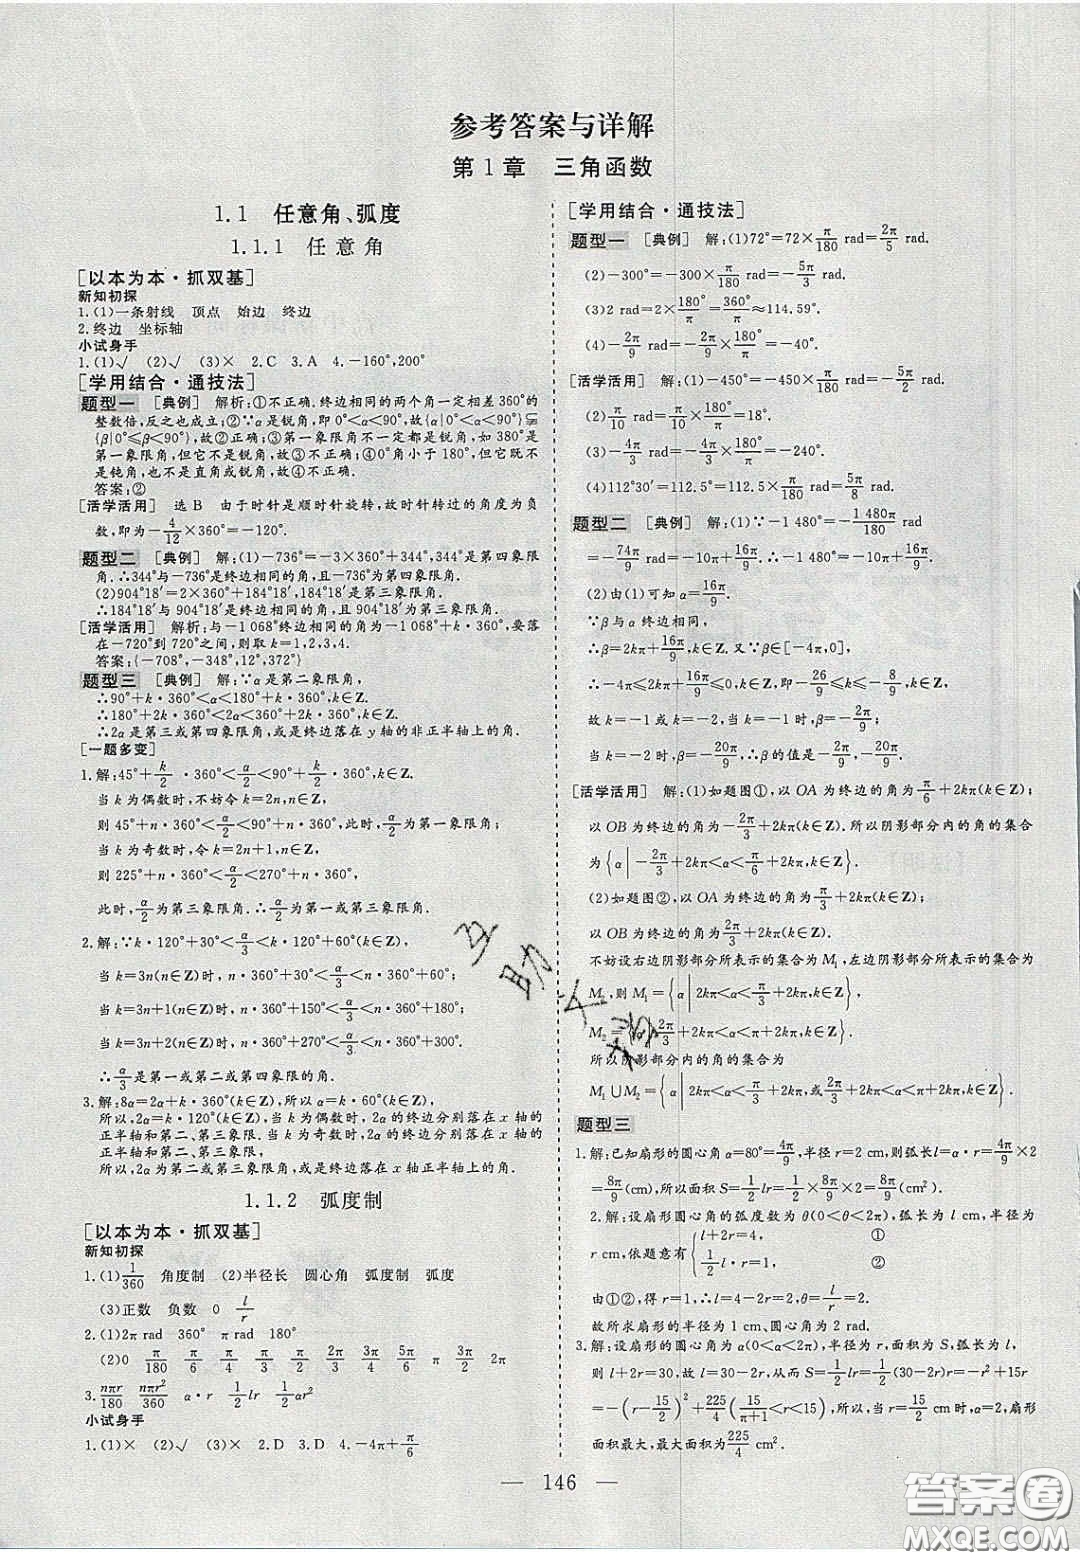 参考答案与详解
第1章 三角函数
1.1 任意角、弧度
1.1.1 任意角
[以本为本·抓双基]
新知初探
1.(1)一条射线 顶点 始边 终边
2.终边 坐标轴
小试身手
1.(1)√ (2)√ (3)× 2.C 3.A 4.-160°,200°
[学用结合·通技法]
题型一 [典例] 解析:①不正确.终边相同的两个角一定相差360°的
整数倍,反之也成立;②∵α是锐角,即0°<α<90°,故{α|0°<α<90°}⊊
{β|0°≤β<90°},故②正确;③第一象限角不一定都是锐角,如380°是
第一象限角,但它不是锐角,故③不正确;④0°角小于180°,但它既不
是钝角,也不是直角或锐角,故④不正确.
答案:②
[活学活用] 选B 由于时针是顺时针旋转,故时针转过的角度为负
数,即为-4/12×360°=-120°.
题型二 [典例] 解:(1)-736°=-3×360°+344°,344°是第四象限
角.∴344°与-736°是终边相同的角,且-736°为第四象限角.
(2)904°18′=2×360°+184°18′,184°18′是第三象限角.
∴184°18′与904°18′是终边相同的角,且904°18′为第三象限角.
[活学活用] 解析:与-1 068°终边相同的角为-1 068°+k·360°,要落
在-720°到720°之间,则取k=1,2,3,4.
答案:{-708°,-348°,12°,372°}
题型三 [典例] 解:∵α是第二象限角,
∴90°+k·360°<α<180°+k·360°,k∈Z.
∴180°+2k·360°<2α<360°+2k·360°,k∈Z.
∴2α是第三或第四象限角,或是终边落在y轴的非正半轴上的角.
[一题多变]
1.解:45°+k/2·360°<α/2<90°+k/2·360°,k∈Z.
当k为偶数时,不妨令k=2n,n∈Z,
则45°+n·360°<α/2<90°+n·360°,此时,α/2为第一象限角;
当k为奇数时,令k=2n+1,n∈Z,
则225°+n·360°<α/2<270°+n·360°,
此时,α/2为第三象限角.∴α/2为第一或第三象限角.
2.解:∵k·120°+30°<α/3<k·120°+60°(k∈Z),
当k=3n(n∈Z)时,n·360°+30°<α/3<n·360°+60°;
当k=3n+1(n∈Z)时,n·360°+150°<α/3<n·360°+180°;
当k=3n+2(n∈Z)时,n·360°+270°<α/3<n·360°+300°.
∴α/3是第一或第二或第四象限的角.
3.解:8α=2α+k·360°(k∈Z),所以α=k·60°(k∈Z),
所以,2α=k·120°(k∈Z).当k为偶数时,2α的终边分别落在x轴的
正半轴和第二、第三象限.当k为奇数时,2α的终边分别落在x轴的
正半轴和第二、第三象限,
所以,2α为第二或第三象限的角或终边落在x轴正半轴上的角.
1.1.2 弧度制
[以本为本·抓双基]
新知初探
1.(1)1/360 角度制 (2)半径长 圆心角 弧度制 弧度
(3)正数 负数 0 l/r
2.(1)2π rad 360° π rad 180°
(2)0 π/180 π/6 π/4 π/3 π/2 2π/3 3π/4 5π/6 π 3π/2 2π
3.nπr/180 nπr²/360 α·r 1/2lr 1/2αr²
小试身手
1.(1)× (2)√ (3)× 2.D 3.D 4.-4π+π/6
[学用结合·通技法]
题型一 [典例] 解:(1)72°=72×π/180 rad=2π/5 rad.
(2)-300°=-300×π/180 rad=-5π/3 rad.
(3)2 rad=2×180°/π=360°/π≈114.59°.
(4)-2π/9 rad=-2π/9×180°/π=-40°.
[活学活用] 解:(1)-450°=-450×π/180 rad=-5π/2 rad.
(2)π/10 rad=π/10×180°/π=18°.
(3)-4π/3 rad=-4π/3×180°/π=-240°.
(4)112°30′=112.5°=112.5×π/180 rad=5π/8 rad.
题型二 [典例] 解:(1)∵-1 480°=-1 480π/180 rad
=-74π/9 rad=-10π+16π/9,∴-1 480°=-10π+16π/9.
(2)由(1)可知α=16π/9.
∵β与α终边相同,
∴β=2kπ+16π/9,k∈Z.又∵β∈[-4π,0],
∴-4π≤2kπ+16π/9≤0,k∈Z,即-26/9≤k≤-8/9,k∈Z,
故k=-1或k=-2,当k=-1时,β=-2π/9;
当k=-2时,β=-20π/9;∴β的值是-2π/9,-20π/9.
[活学活用] 解:(1)如题图①,以OA为终边的角为π/6+2kπ(k∈Z);
以OB为终边的角为-2π/3+2kπ(k∈Z).所以阴影部分内的角的集合
为{α|-2π/3+2kπ<α<π/6+2kπ,k∈Z}.
(2)如题图②,以OA为终边的角为π/3+2kπ,k∈Z;
以OB为终边的角为2π/3+2kπ,k∈Z.
不妨设右边阴影部分所表示的集合为M₁,左边阴影部分所表示的集合为
M₂,则M₁={α|2kπ<α<π/3+2kπ,k∈Z},
M₂={α|2π/3+2kπ<α<π+2kπ,k∈Z}.
所以阴影部分内的角的集合为
M₁∪M₂={α|2kπ<α<π/3+2kπ,或2π/3+2kπ<α<π+2kπ,k∈Z}.
题型三
1.解:已知扇形的圆心角α=80°=4π/9,半径r=2 cm,则弧长l=α·r=4π/9×2
=8π/9(cm),所以面积S=1/2lr=1/2×8π/9×2=8π/9(cm²).
2.解:设扇形圆心角的弧度数为θ(0<θ<2π),弧长为l cm,半径为
r cm,依题意有{l+2r=4, ①
1/2l·r=1, ②
由①②,得r=1,∴l=4-2r=2,∴θ=l/r=2.
故所求扇形的半径为1 cm、圆心角为2 rad.
3.解:设扇形的圆心角为α(0<α<2π),半径为r,面积为S,弧长为l,
则l+2r=30,故l=30-2r,从而S=1/2lr=1/2(30-2r)r=-r²+15r
=-(r-15/2)²+225/4(15/(π+1)<r<15),所以,当r=15/2 cm时,α=2,扇形
面积最大,最大面积为225/4 cm².
146
互助文档
答案圈
MXQE.COM